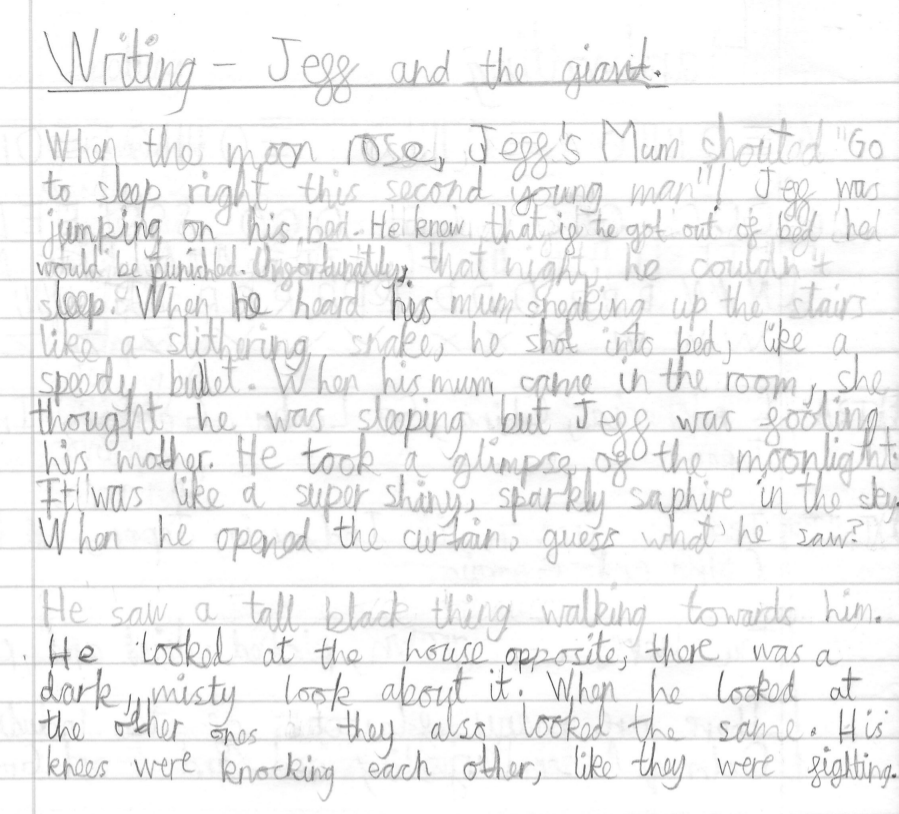 Writing - Jeff and the giant.
When the moon rose, Jeff's Mum shouted "Go
to sleep right this second young man"! Jeff was
jumping on his bed. He knew that if he got out of bed hed
would be punished. Unfortunatlly, that night, he couldn't
sleep. When he heard his mum sneaking up the stairs
like a slithering snake, he shot into bed, like a
speedy bullet. When his mum came in the room, she
thought he was sleeping but Jeff was fooling
his mother. He took a glimpse of the moonlight.
It was like a super shiny, sparkly saphire in the sky.
When he opened the curtain, guess what he saw?
He saw a tall black thing walking towards him.
He looked at the house opposite, there was a
dark, misty look about it. When he looked at
the other ones they also looked the same. His
knees were knocking each other, like they were fighting.